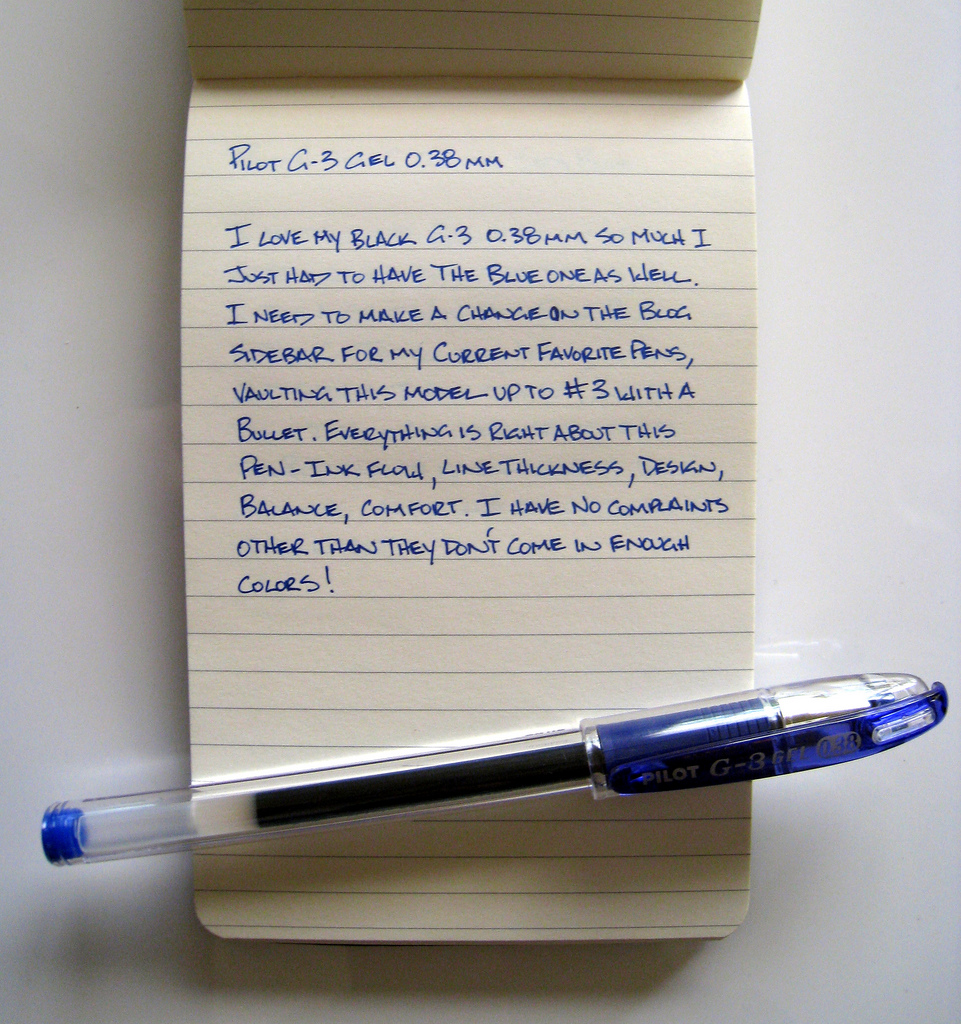 PILOT G-3 GEL 0.38MM
I LOVE MY BLACK G-3 0.38MM SO MUCH I
JUST HAD TO HAVE THE BLUE ONE AS WELL.
I NEED TO MAKE A CHANGE ON THE BLOG
SIDEBAR FOR MY CURRENT FAVORITE PENS,
VAULTING THIS MODEL UP TO #3 WITH A
BULLET. EVERYTHING IS RIGHT ABOUT THIS
PEN - INK FLOW, LINE THICKNESS, DESIGN,
BALANCE, COMFORT. I HAVE NO COMPLAINTS
OTHER THAN THEY DON'T COME IN ENOUGH
COLORS!
PILOT G-3 GEL 0.38